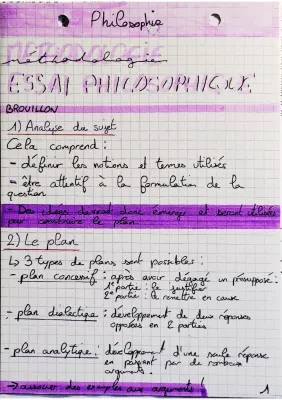 Philosophie
MÉTHODOLOGIE
méthodologie
ESSAI PHILOSOPHIQUE
BROUILLON
1) Analyse du sujet
Cela comprend :
- définir les notions et termes utilisés
- être attentif à la formulation de la
question
- Des idées devront donc émerger et seront utilisées
pour construire le plan.
2) Le plan
↳ 3 types de plans sont possibles :
- plan concessif : après avoir dégagé un présupposé :
1° partie : le justifier
2° partie : le remettre en cause
- plan dialectique : développement de deux réponses
opposées en 2 parties
- plan analytique : développement d'une seule réponse
en passant par de nombreux
arguments.
→ associer des exemples aux arguments !
1